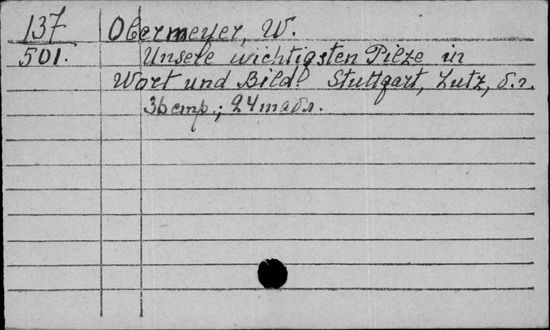 137 Obermeyer, W.
501. Unsere wichtigsten Pilze in
Wort und Bild. Stuttgart, Lutz, б.г.
36 стр.; 24 табл.